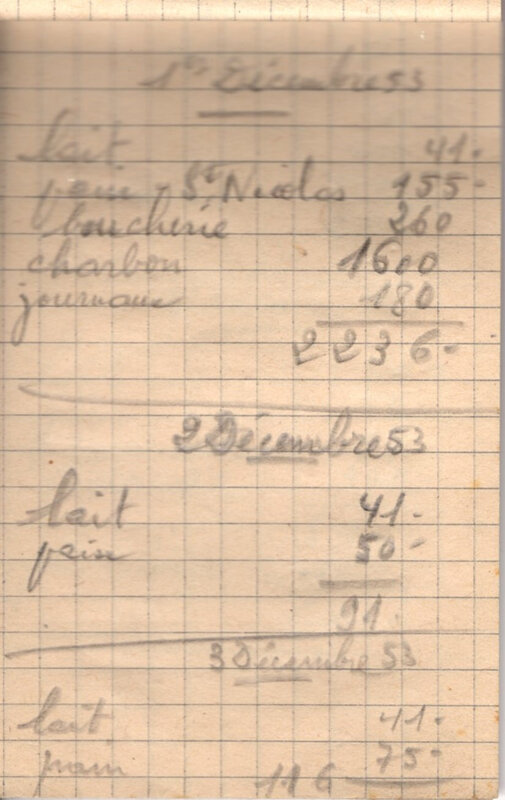 1er Décembre 53
lait 41.-
pain - St Nicolas 155-
boucherie 260
charbon 1600
journaux 180
2236.-
2 Décembre 53
lait 41.-
pain 50-
91.
3 Décembre 53
lait 41.-
pain 75-
116